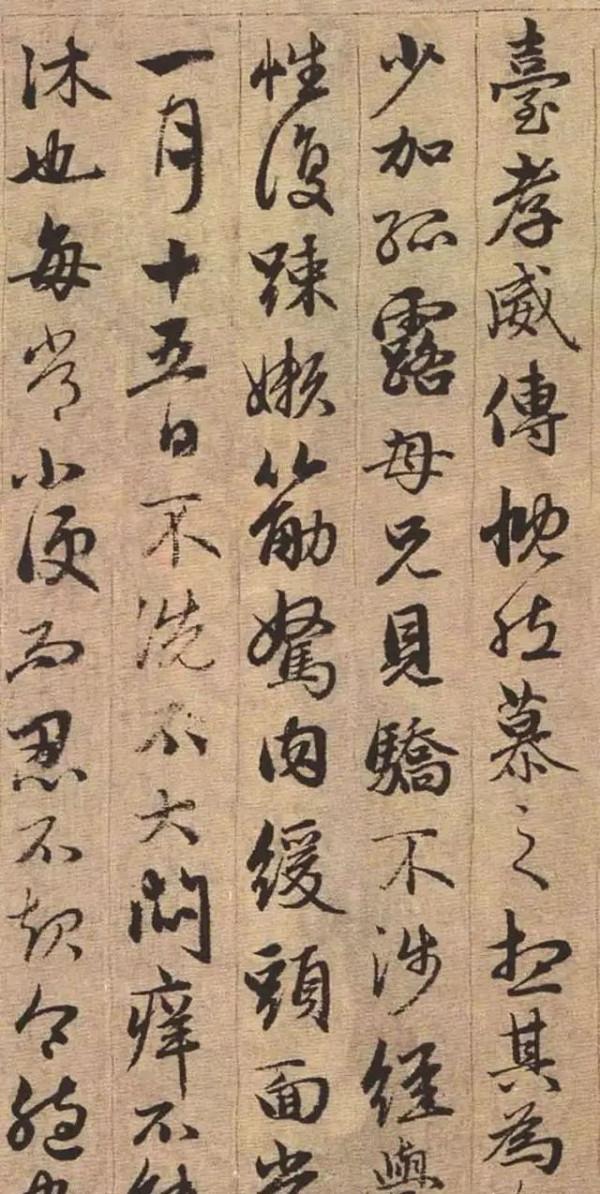 臺孝威傳慨然慕之想其為
少加孤露母兄見驕不涉經學
性復踈嬾筋駑肉緩頭面常
一月十五日不洗不大悶痒不能
沐也每常小便而忍不起令胞